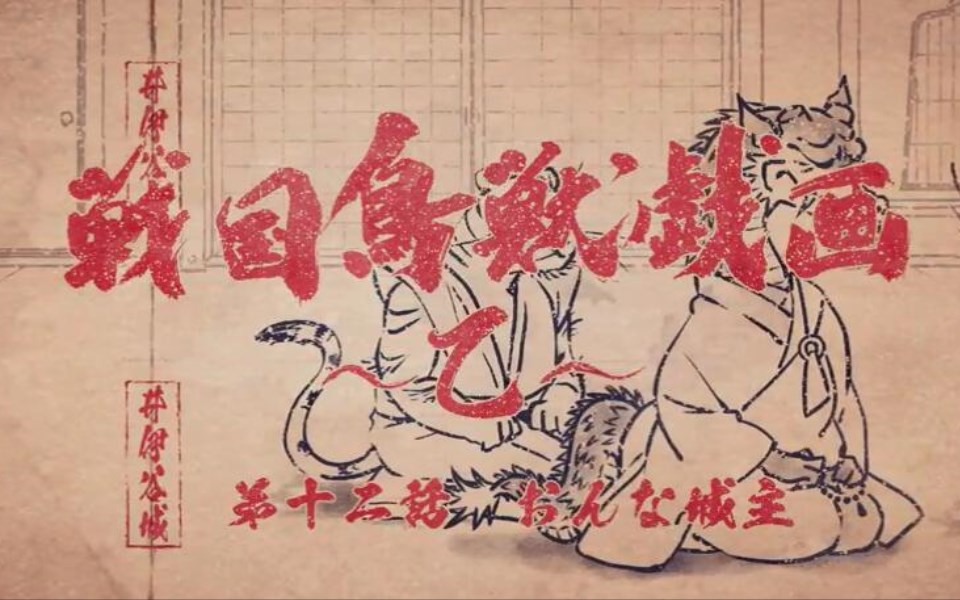 戦国鳥獣戯画
～乙～
第十二話 おんな城主
井伊谷城
井伊谷城